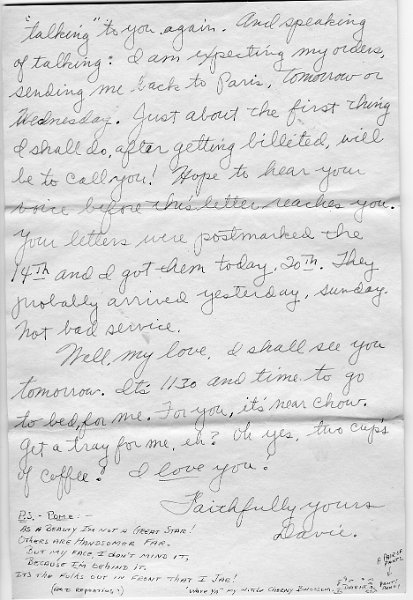 "talking" to you again. And speaking
of talking: I am expecting my orders,
sending me back to Paris, tomorrow or
Wednesday. Just about the first thing
I shall do, after getting billeted, will
be to call you! Hope to hear your
voice before this letter reaches you.
Your letters were postmarked the
14th and I got them today, 20th. They
probably arrived yesterday, Sunday.
Not bad service.
Well, my love, I shall see you
tomorrow. Its 1130 and time to go
to bed, for me. For you, it's near chow.
Get a tray for me, eh? Oh yes, two cups
of coffee! I love you.
Faithfully yours
Davie.
P.S. - Pome: -
As a beauty I'm not a great star!
Others are handsomer far.
But my face, I don't mind it,
Because I'm behind it.
Its the folks out in front that I jar!
(Am I repeating?)
"Wuve Ya" my little Cherny
A pair of
pants